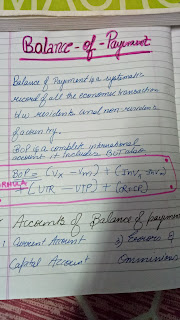 Balance-of-Payment
Balance of Payment is a systematic
record of all the economic transaction
b/w residents and non-residents
of a country.
BOP is a complete international
account it includes
BOP = (Vx - Vm) + (Inv1 - Inv2)
+ (UTR - UTP) +
Accounts of Balance of payment
1. Current Account 3) Errors &
Capital Account Ommissions